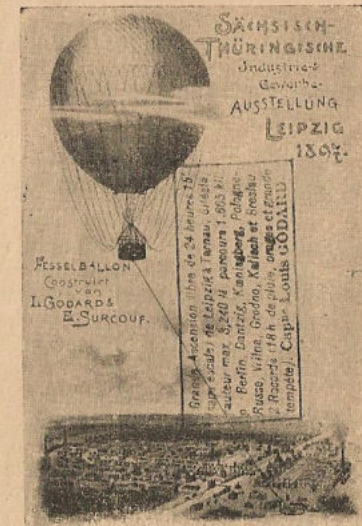 SÄCHSISCH-
THÜRINGISCHE
Industrie-&
Gewerbe-
AUSSTELLUNG
LEIPZIG
1897.
FESSELBALLON
Construirt
von
L. GODARD &
E. SURCOUF.
Grande Ascension libre de 24 heures 15
(sans escale) de Leipzig à Tarnau, Silésie
hauteur max. 3,240 M. parcours 1.665 kil.
Berlin, Dantzig, Kœnigsberg, Pologne-
Russe, Vilna, Grodno, Kalisch et Breslau
2 Records (18 h de pluie, orages et grande
tempête). Capne Louis GODARD